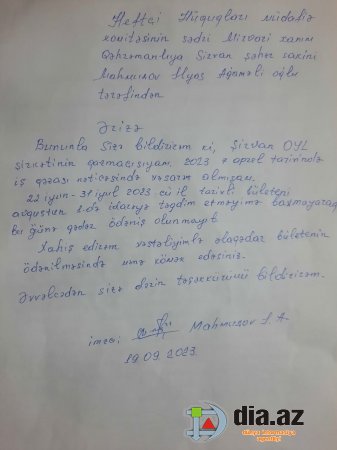 Neftçi Hüquqları müdafiə
komitəsinin sədri Mirvari xanım
Qəhrəmanlıya Şirvan şəhər sakini
Mahmudov İlyas Ağaməli oğlu
tərəfindən
Ərizə
Bununla Sizə bildirirəm ki, Şirvan OYL
şirkətinin qazmaçısıyam. 2023 7 aprel tarixində
iş qəzası nəticəsində xəsarət almışam.
22 iyun - 31 iyul 2023 cü il tarixli bületeni
avqustun 1.də idarəyə təqdim etməyimə baxmayaraq
bu günə qədər ödəniş olunmayıb.
Xahiş edirəm xəstəliyimlə əlaqədar bületenin
ödənilməsində mənə kömək edəsiniz.
Əvvəlcədən sizə dərin təşəkkürümü bildirirəm.
imza: Mahmudov İ. A.
19.09.2023.
dia.az
dünya informasiya
agentliyi